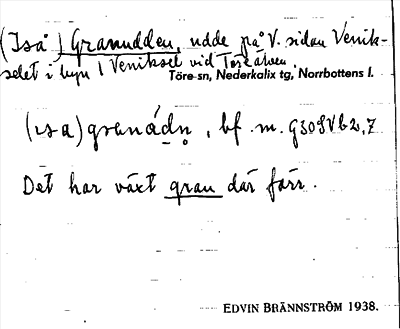 (Iså) Granudden, udde på V. sidan Venik-
selet i byn 1 Veniksel vid Töreälven.
Töre sn, Nederkalix tg, Norrbottens l.
(ɩsa) granádn̥, bf. m. G30SVb2,7
Det har växt gran där förr.
EDVIN BRÄNNSTRÖM 1938.